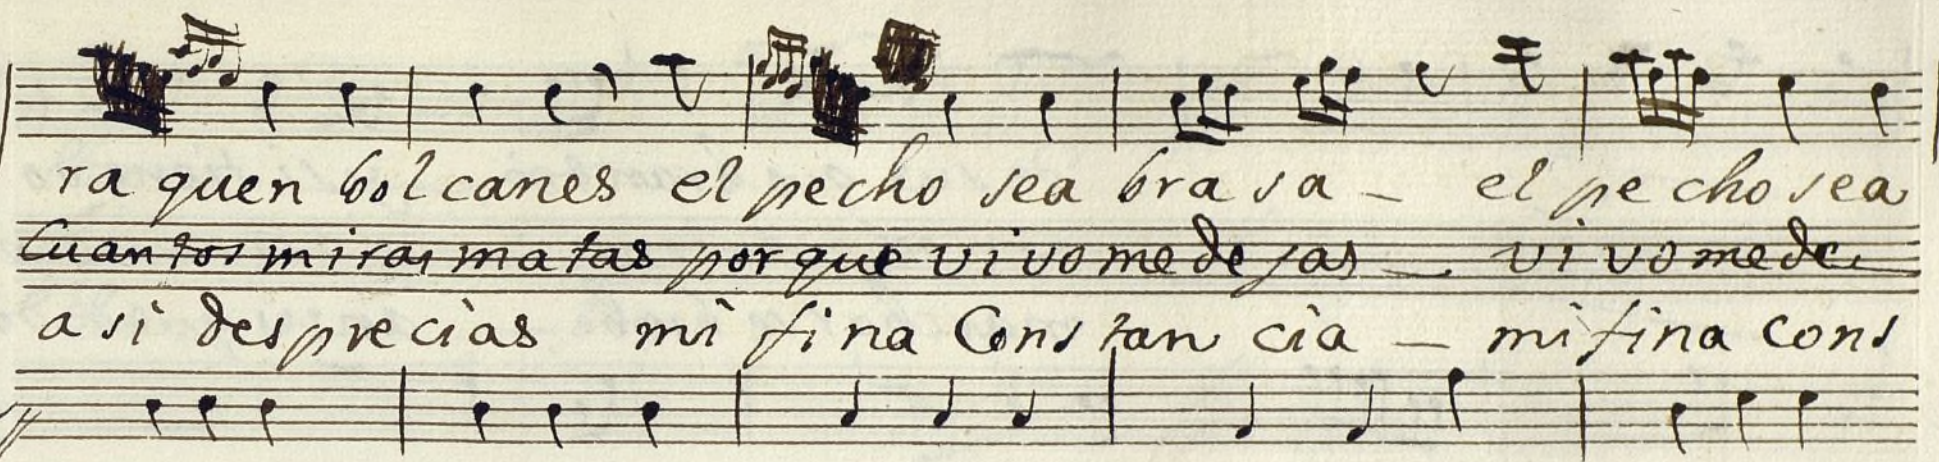 ra quen bol canes el pecho sea bra sa - el pe cho sea
Cuantos miras matas por que vivo me dejas - vi vo me de
a si des precias mi fina Cons tan cia - mi fina Cons